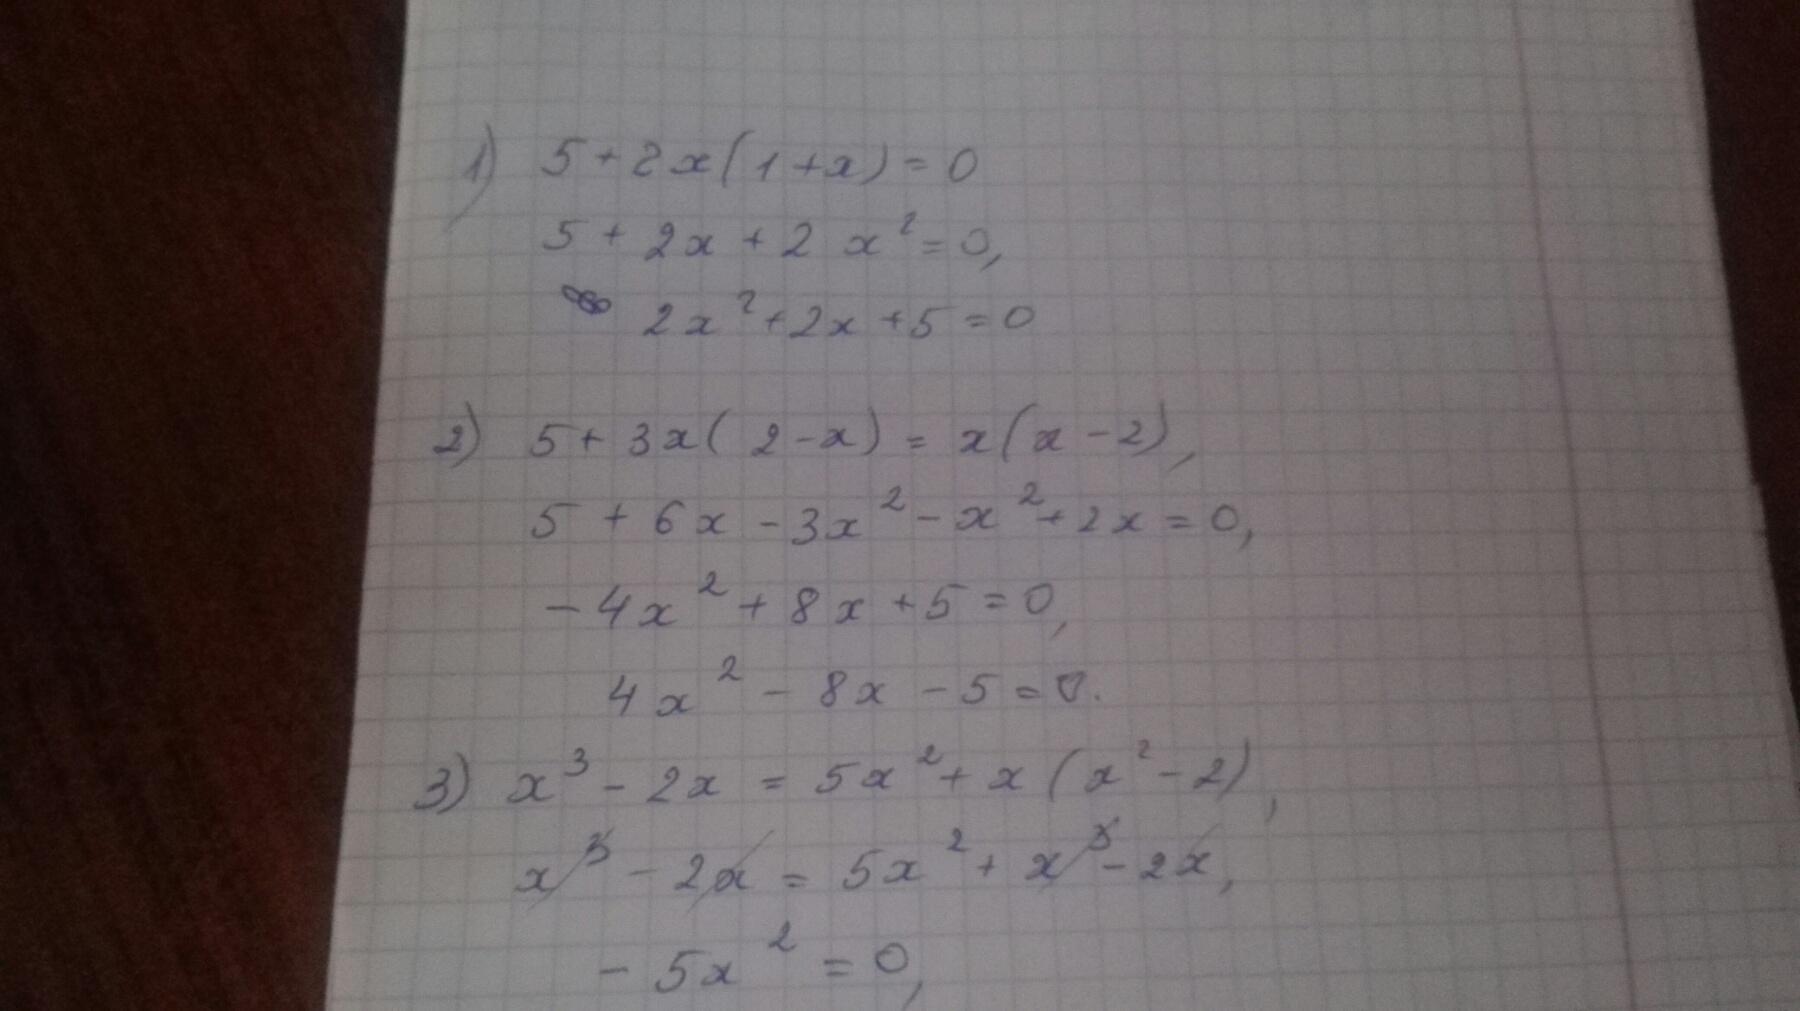 1) 5 + 2x(1+x) = 0
5 + 2x + 2 x² = 0,
2x² + 2x + 5 = 0
2) 5 + 3x( 2 - x) = x(x - 2),
5 + 6x - 3x² - x² + 2x = 0,
- 4x² + 8x + 5 = 0,
4x² - 8x - 5 = 0.
3) x³ - 2x = 5x² + x (x² - 2),
x³ - 2x = 5x² + x³ - 2x,
- 5x² = 0,